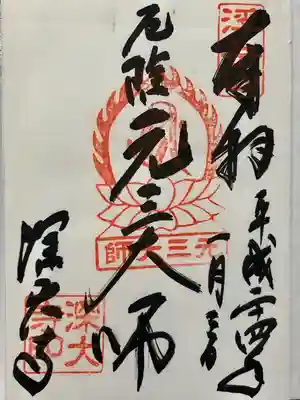 奉拜
平成二十四年
一月
厄除元三大師
深大寺
元三大師
深大寺印